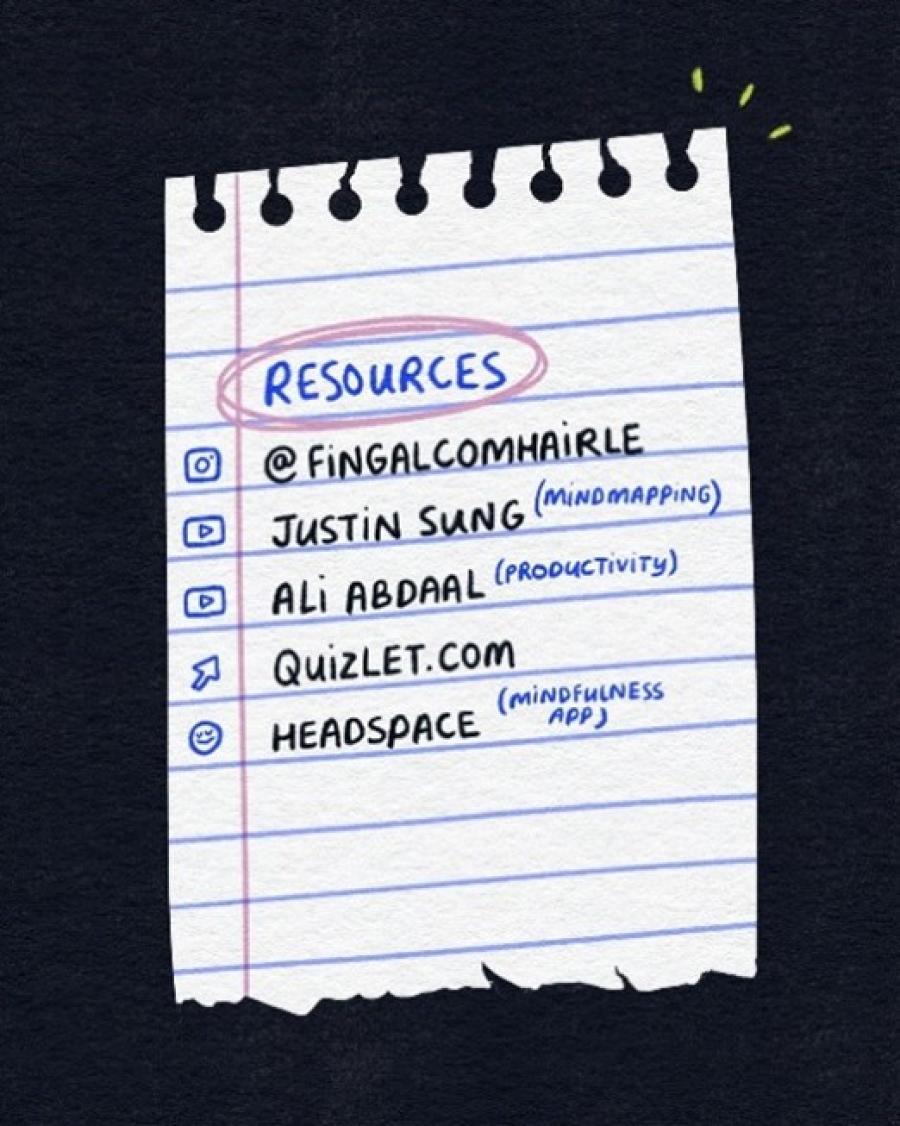 RESOURCES
@FiNGALCOMHAiRLE
JUSTiN SUNG (MiNDMAPPiNG)
ALi ABDAAL (PRODUCTiViTY)
QUiZLET.COM
HEADSPACE (MiNDFULNESS
APP)